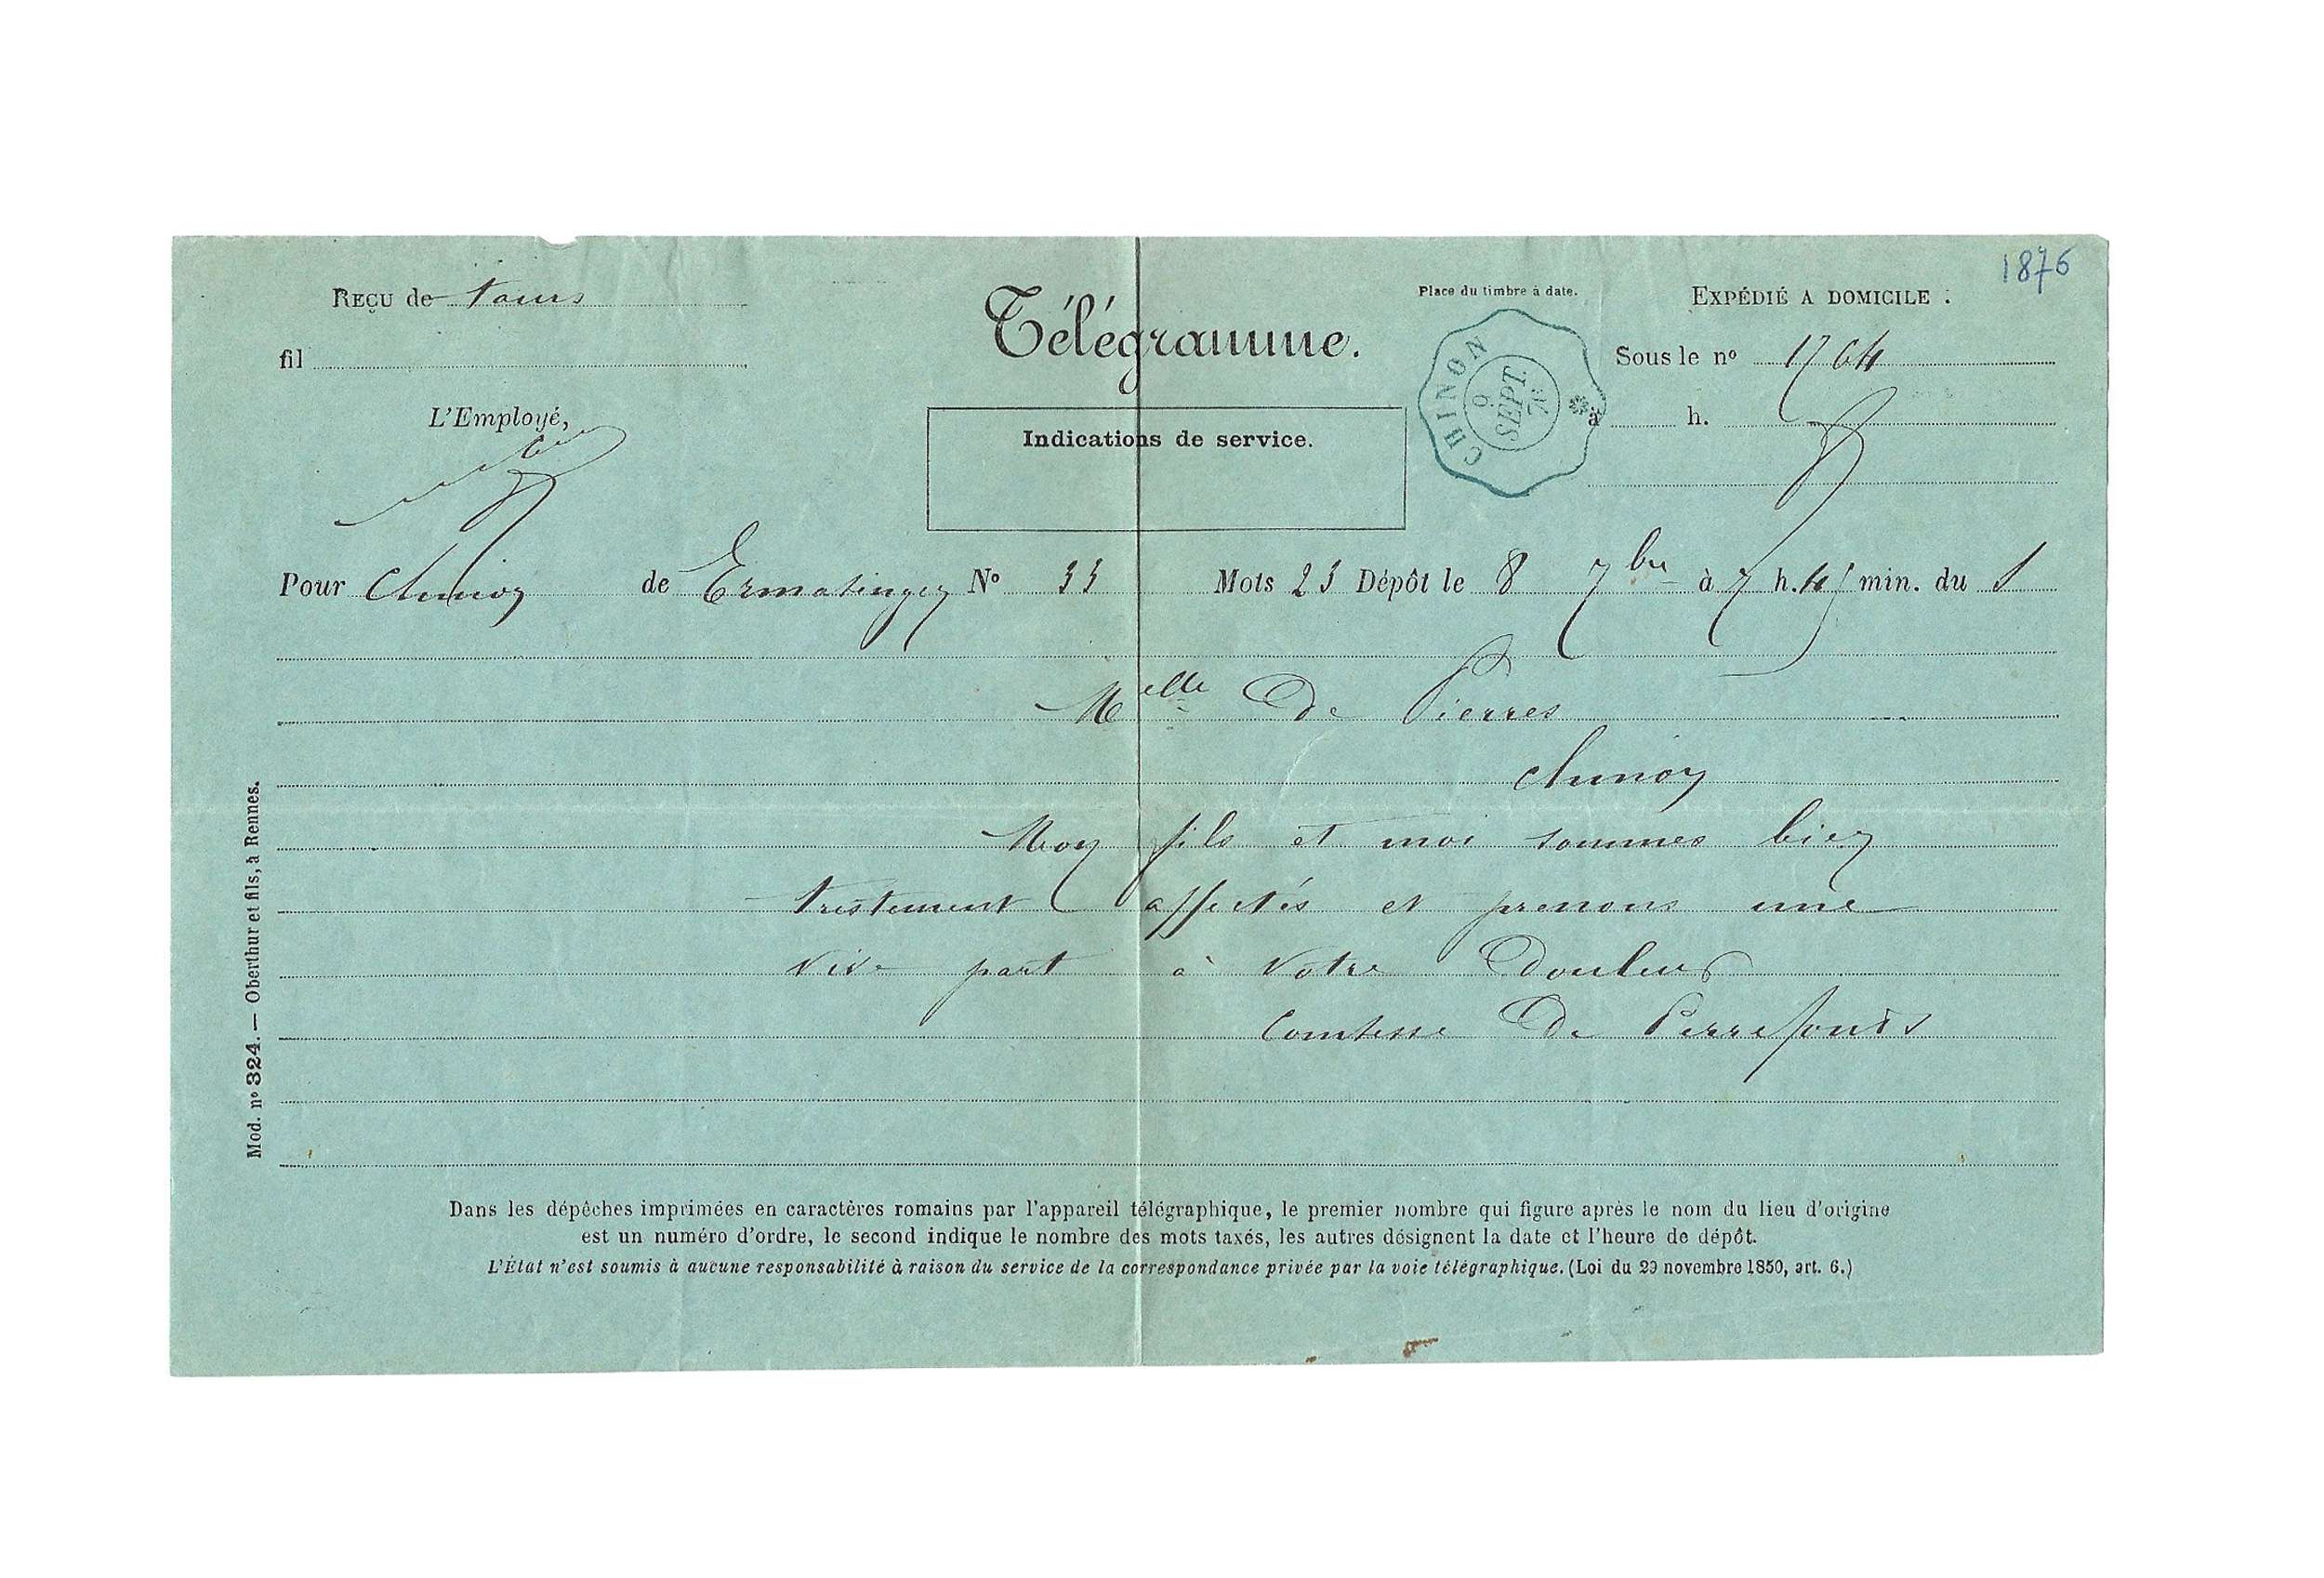 1876
REÇU de tours
fil
L'Employé,
Télégramme.
Indications de service.
Place du timbre à date.
CHINON
9
SEPT.
76
EXPÉDIÉ A DOMICILE :
Sous le nº 1764
à h.
Pour Chinon de Ermatingen Nº 33 Mots 23 Dépôt le 8 7bre à 7 h. 45 min. du S
Melle De Pierres
chinon
Mon fils et moi sommes bien
tristement affectés et prenons une
vive part à votre Douleur
Comtesse De Pierrefonds
Dans les dépêches imprimées en caractères romains par l'appareil télégraphique, le premier nombre qui figure après le nom du lieu d'origine
est un numéro d'ordre, le second indique le nombre des mots taxés, les autres désignent la date et l'heure de dépôt.
L'État n'est soumis à aucune responsabilité à raison du service de la correspondance privée par la voie télégraphique. (Loi du 29 novembre 1850, art. 6.)
Mod. nº 324. — Oberthur et fils, à Rennes.